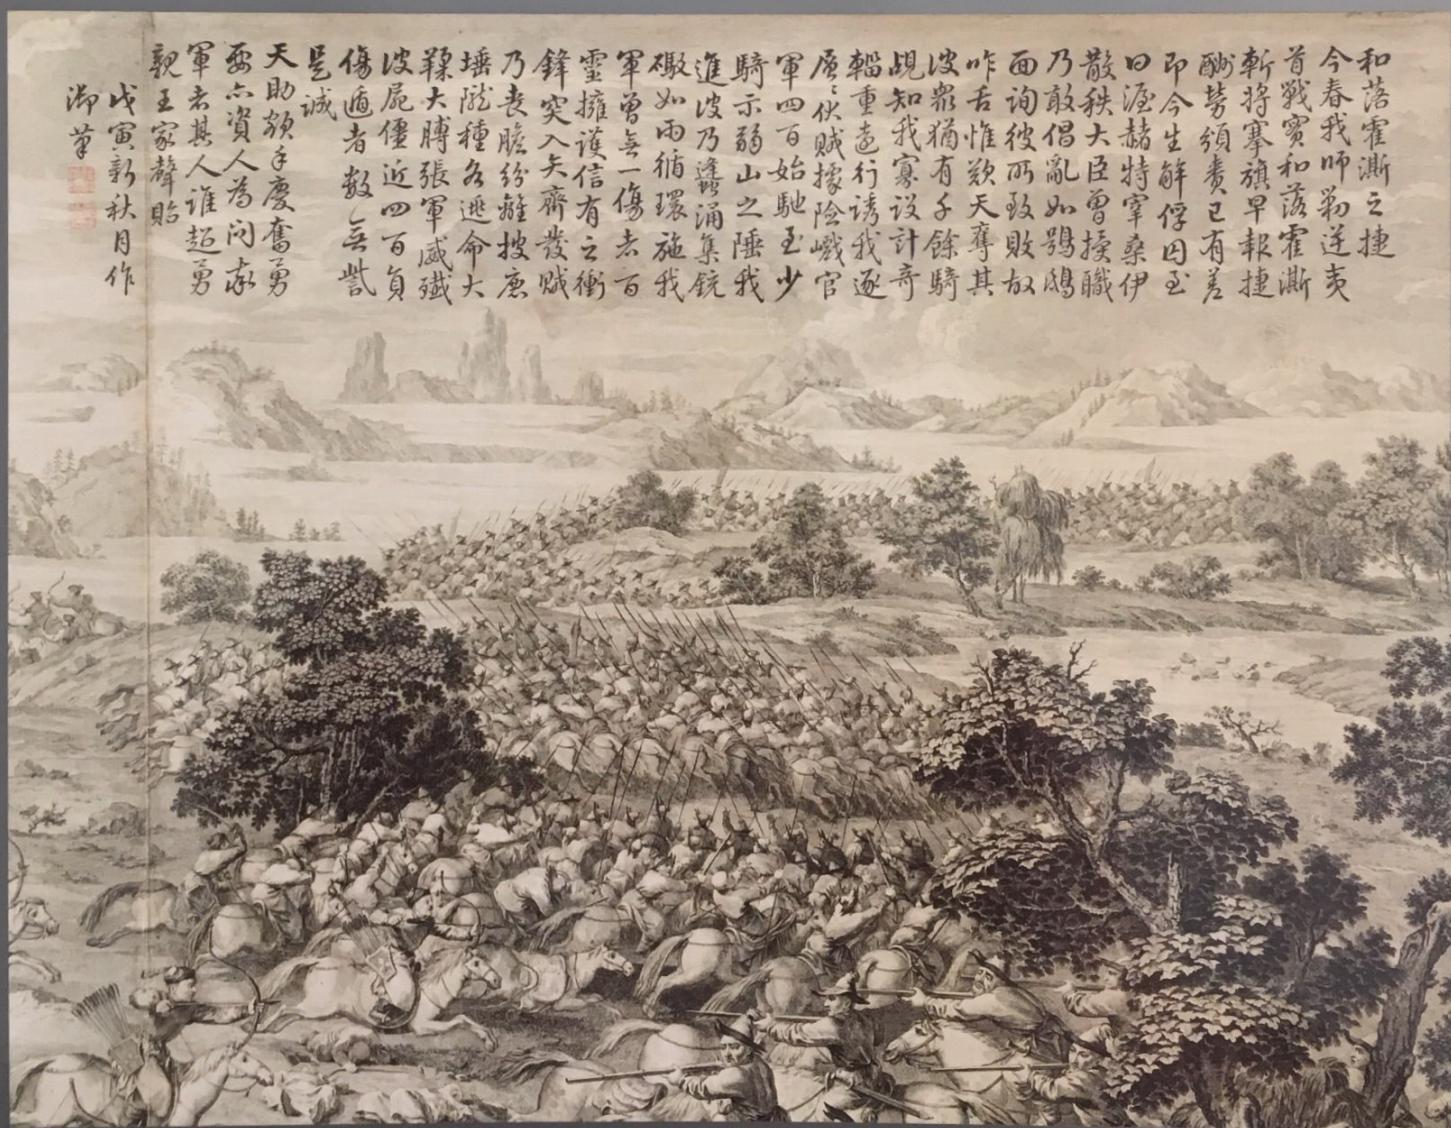 和落霍澌之捷
今春我師勦逆夷
首戰實和落霍澌
斬將搴旗早報捷
酬勞頒賚已有差
即今生解俘囚至
曰渥赫特宰桑伊
散秩大臣曾授職
乃敢倡亂如鴞鴟
面詢彼所致敗故
咋舌惟歎天奪其
彼眾猶有千餘騎
覘知我寡設計奇
輜重遠行誘我逐
層層伏賊據險巇官
軍四百始馳至少
騎示弱山之陲我
進彼乃蠭涌集銃
礮如雨循環施我
軍曾無一傷者百
靈擁護信有之衝
鋒突入矢齊發賊
乃喪膽紛離披鹿
埵隴種各逃命大
鞣大膊張軍威殲
彼屍僵近四百負
傷遁者數無訾
是誠
天助額手慶奮勇
要亦資人為問家
軍者其人誰超勇
親王家聲貽
戊寅新秋月作
御筆